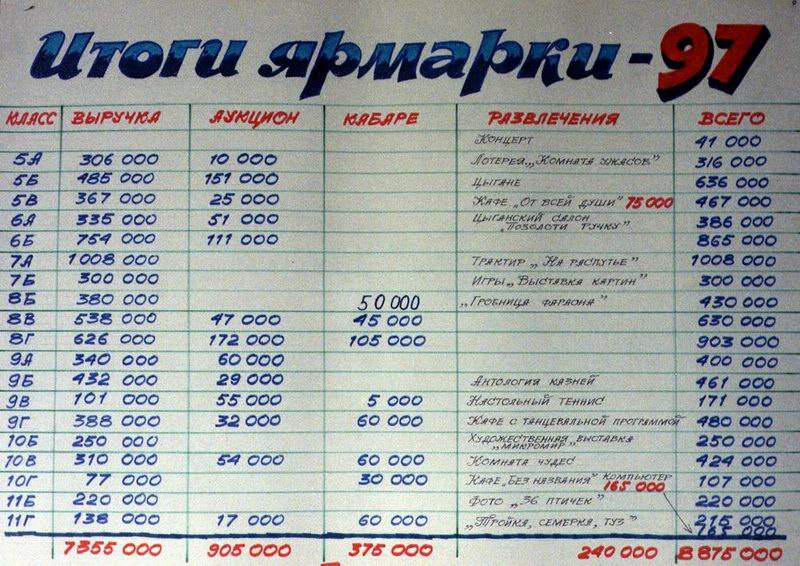 Итоги ярмарки-97
КЛАСС ВЫРУЧКА АУКЦИОН КАБАРЕ РАЗВЛЕЧЕНИЯ ВСЕГО
КОНЦЕРТ 41 000
5А 306 000 10 000 ЛОТЕРЕЯ, „КОМНАТА УЖАСОВ" 316 000
5Б 485 000 151 000 ЦЫГАНЕ 636 000
5В 367 000 25 000 КАФЕ „ОТ ВСЕЙ ДУШИ" 75 000 467 000
6А 335 000 51 000 ЦЫГАНСКИЙ САЛОН „ПОЗОЛОТИ РУЧКУ" 386 000
6Б 754 000 111 000 865 000
7А 1008 000 ТРАКТИР „НА РАСПУТЬЕ" 1008 000
7Б 300 000 ИГРЫ „ВЫСТАВКА КАРТИН" 300 000
8Б 380 000 50 000 „ГРОБНИЦА ФАРАОНА" 430 000
8В 538 000 47 000 45 000 630 000
8Г 626 000 172 000 105 000 903 000
9А 340 000 60 000 400 000
9Б 432 000 29 000 АНТОЛОГИЯ КАЗНЕЙ 461 000
9В 101 000 55 000 5 000 НАСТОЛЬНЫЙ ТЕННИС 171 000
9Г 388 000 32 000 60 000 КАФЕ С ТАНЦЕВАЛЬНОЙ ПРОГРАММОЙ 480 000
10Б 250 000 ХУДОЖЕСТВЕННАЯ ВЫСТАВКА „МИКРОМИР" 250 000
10В 310 000 54 000 60 000 КОМНАТА ЧУДЕС 424 000
10Г 77 000 30 000 КАФЕ „БЕЗ НАЗВАНИЯ" КОМПЬЮТЕР 165 000 107 000
11Б 220 000 ФОТО „36 ПТИЧЕК" 220 000
11Г 138 000 17 000 60 000 „ТРОЙКА, СЕМЕРКА, ТУЗ" 215 000
165 000
7355 000 905 000 375 000 240 000 8 875 000